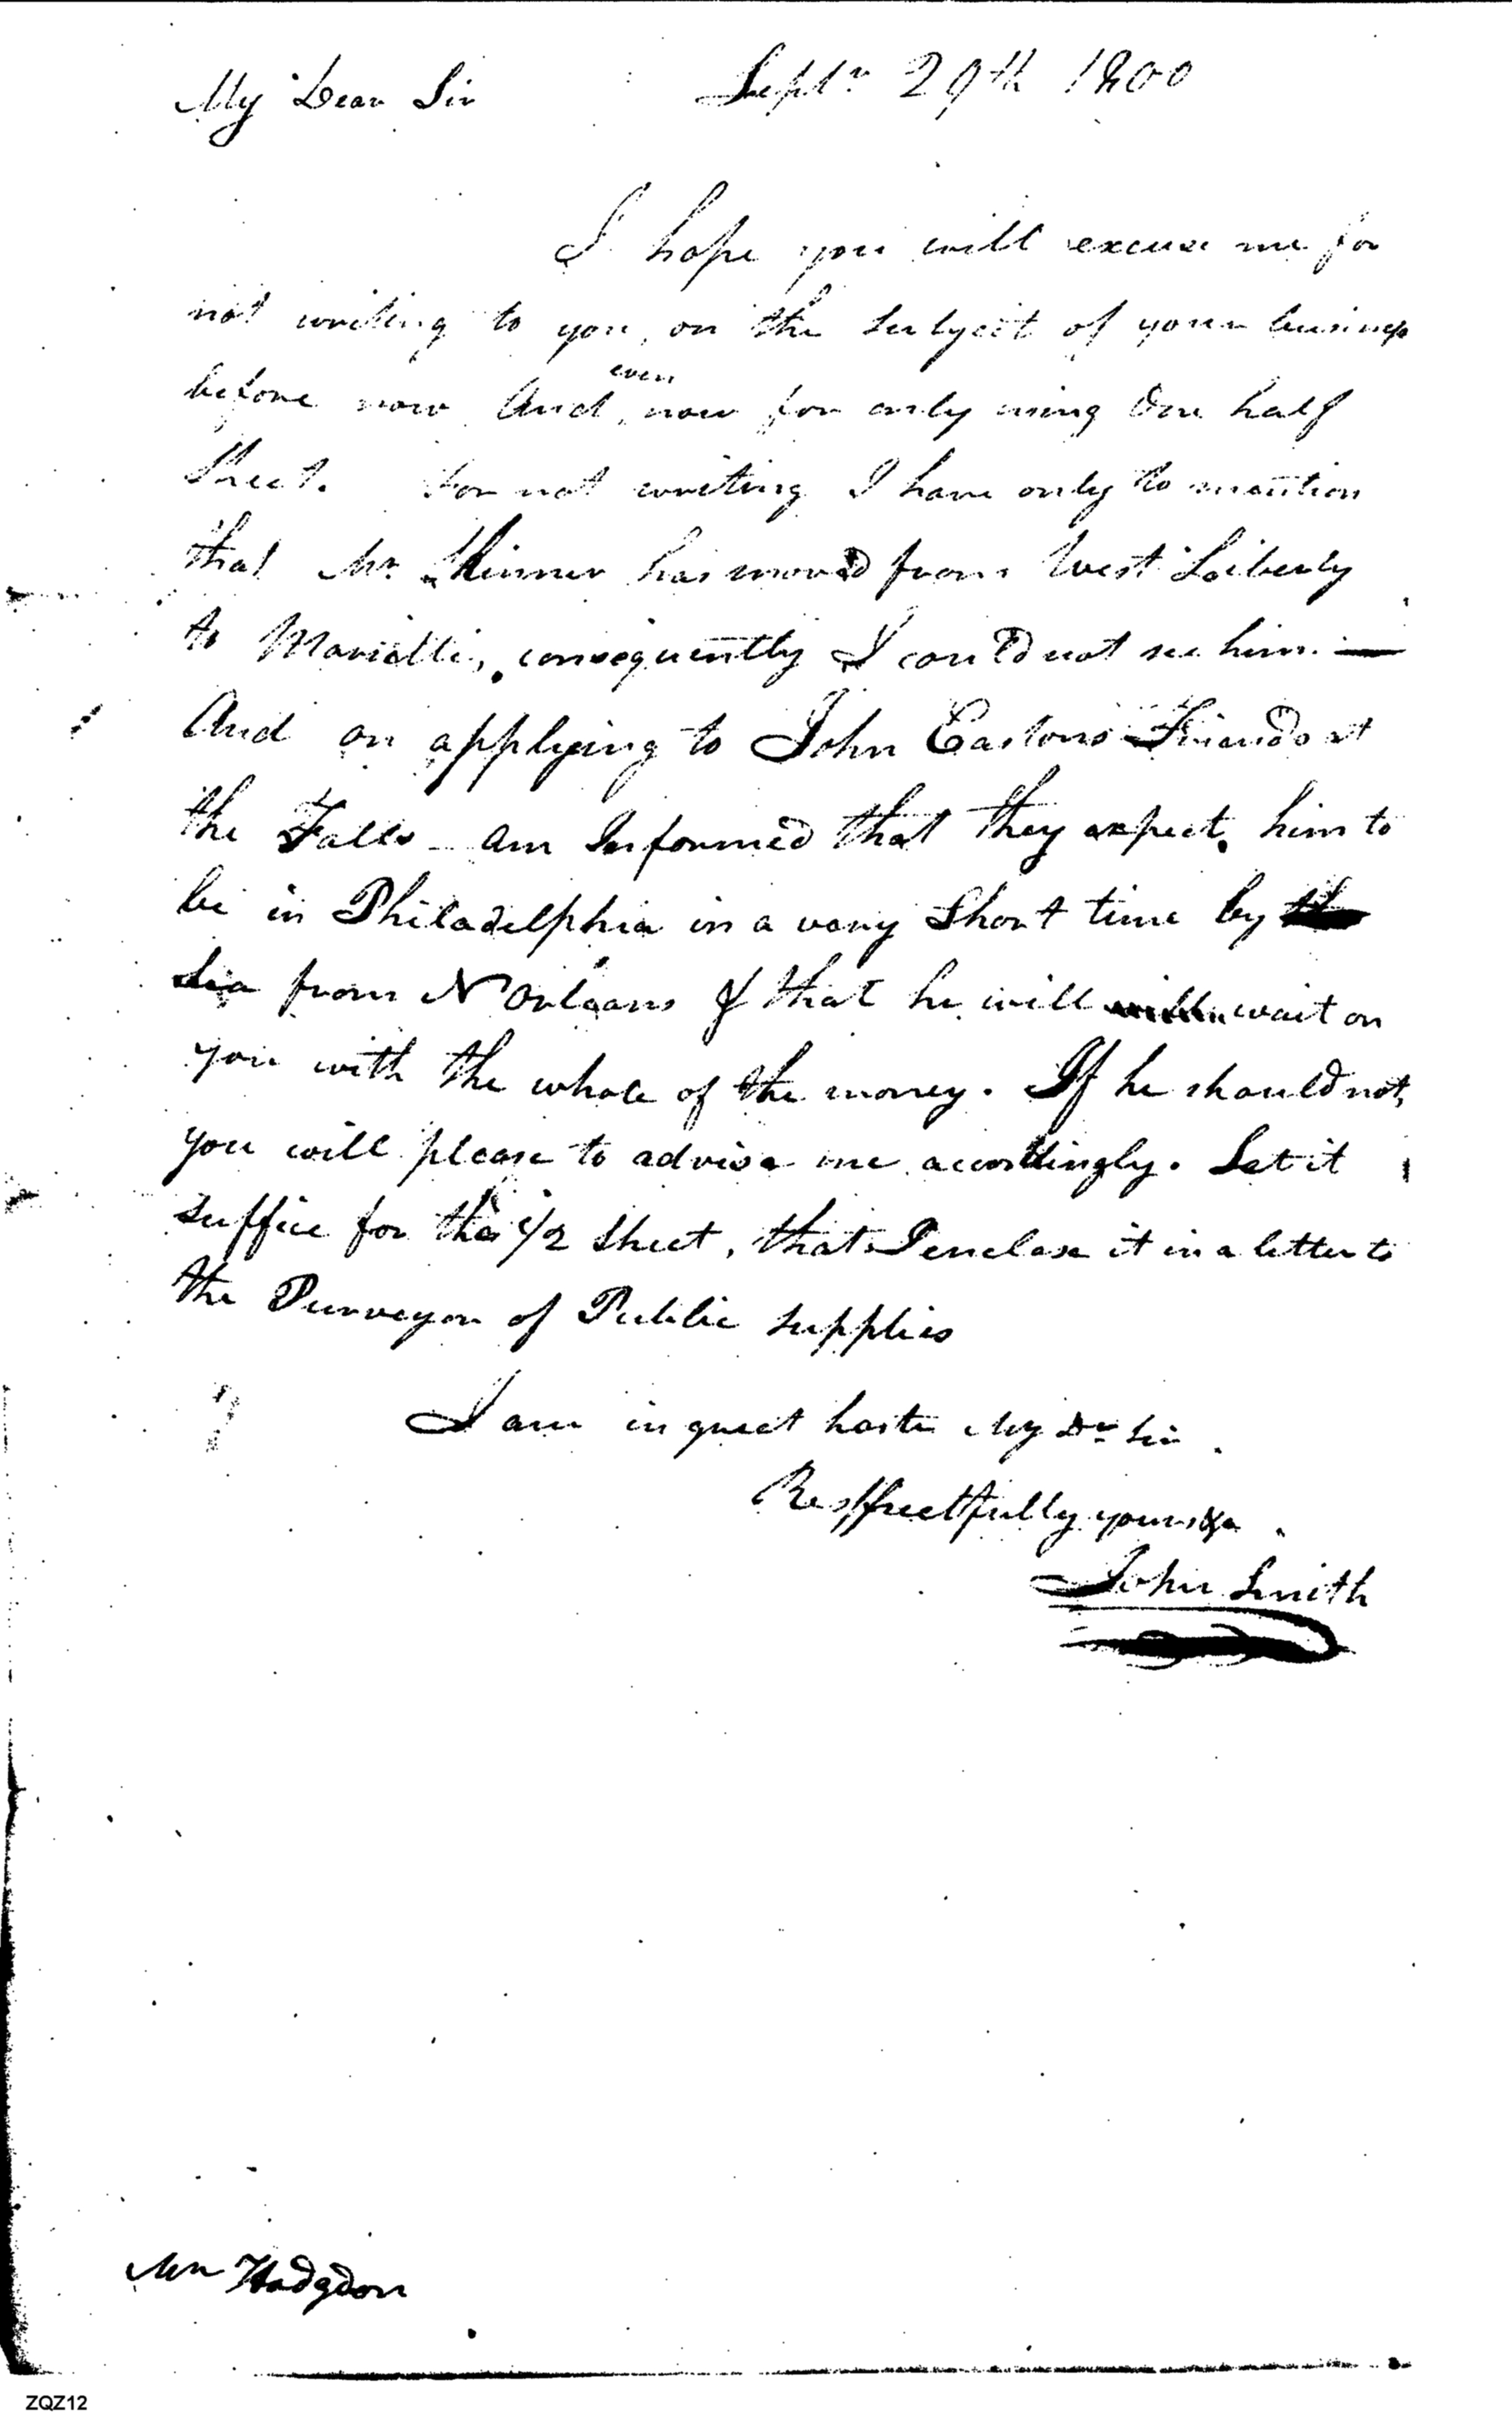 My Dear Sir Septr 29th 1800
I hope you will excuse me for
not writing to you, on the subject of your business
even
before now And, now for only using One half
Sheet. For not writing I have only to mention
that Mr. Skinner has moved from West Liberty
to Marietta, consequently I could not see him. —
And on applying to John Eastons Friends at
the Falls – am Informed that they expect him to
be in Philadelphia in a very Short time by
Sea from N Orleans & that he will wait on
you with the whole of the money. If he should not,
you will please to advise me accordingly. Let it
suffice for the 1/2 Sheet, that I enclose it in a letter to
the Purveyor of Public supplies
I am in great haste My Dr Sir
Respectfully yours &a.
John Smith
Mr Hodgdon
ZQZ12